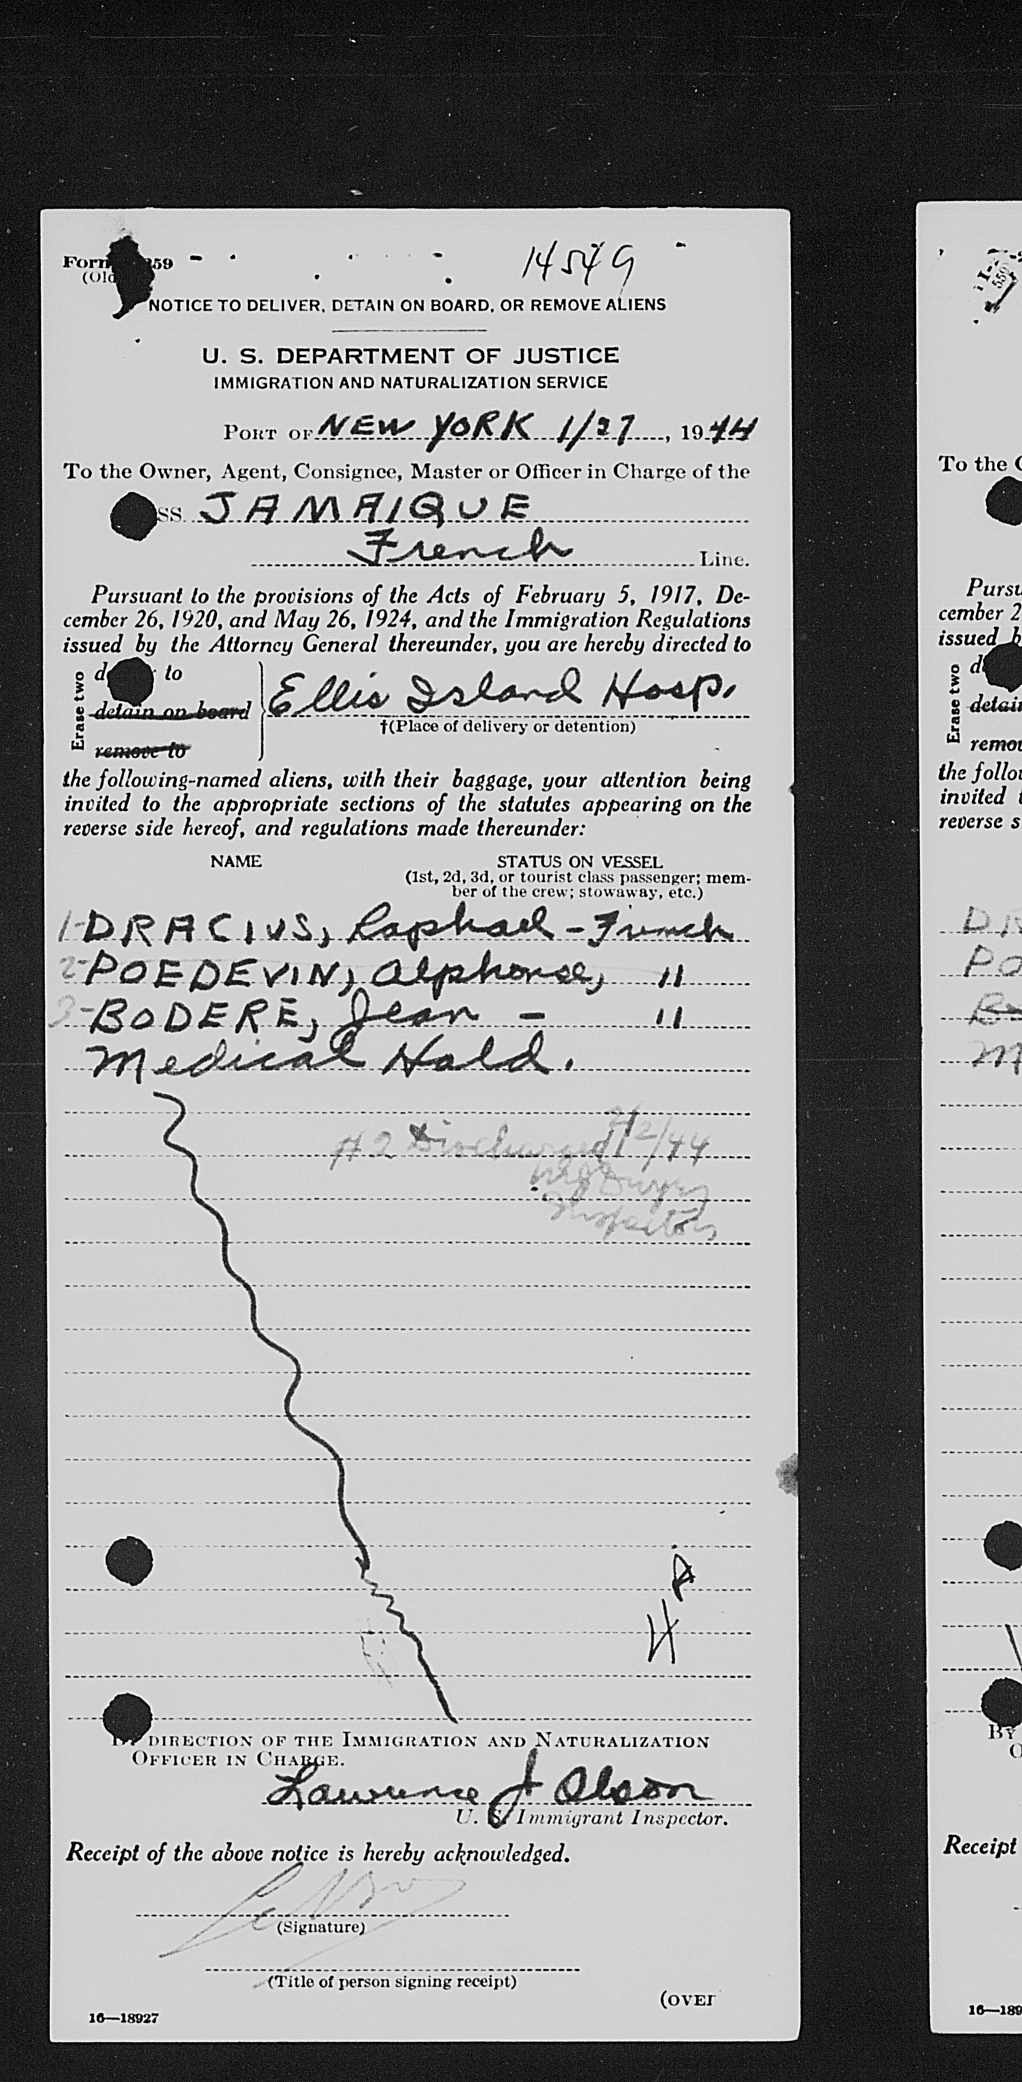 14549
Form 259
(Old
NOTICE TO DELIVER, DETAIN ON BOARD, OR REMOVE ALIENS
U. S. DEPARTMENT OF JUSTICE
IMMIGRATION AND NATURALIZATION SERVICE
PORT OF NEW YORK 1/27, 1944
To the Owner, Agent, Consignee, Master or Officer in Charge of the
SS. JAMAIQUE
French Line.
Pursuant to the provisions of the Acts of February 5, 1917, De-
cember 26, 1920, and May 26, 1924, and the Immigration Regulations
issued by the Attorney General thereunder, you are hereby directed to
Erase two
to
detain on board
remove to
Ellis Island Hosp.
†(Place of delivery or detention)
the following-named aliens, with their baggage, your attention being
invited to the appropriate sections of the statutes appearing on the
reverse side hereof, and regulations made thereunder:
NAME STATUS ON VESSEL
(1st, 2d, 3d, or tourist class passenger; mem-
ber of the crew; stowaway, etc.)
1- DRACIUS, Raphael - French
2- POEDEVIN, Alphonse, "
3- BODERE, Jean - "
Medical Hold.
#2 Discharged 2/2/44
Inspector
BY DIRECTION OF THE IMMIGRATION AND NATURALIZATION
OFFICER IN CHARGE.
Lawrence J Olson
U. S. Immigrant Inspector.
Receipt of the above notice is hereby acknowledged.
(Signature)
(Title of person signing receipt)
(OVER
16—18927
To the
Pursu
cember 2
issued b
Erase two
detain
remov
the follow
invited
reverse s
DR
PO
Bo
M
BY
O
Receipt
16—189